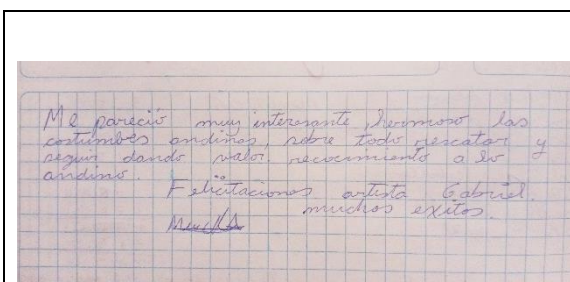 Me pareció muy interesante, hermoso las
costumbres andinas, sobre todo rescatar y
seguir dando valor. recocimiento a lo
andino.
Felicitaciones artista Gabriel.
muchos exitos.